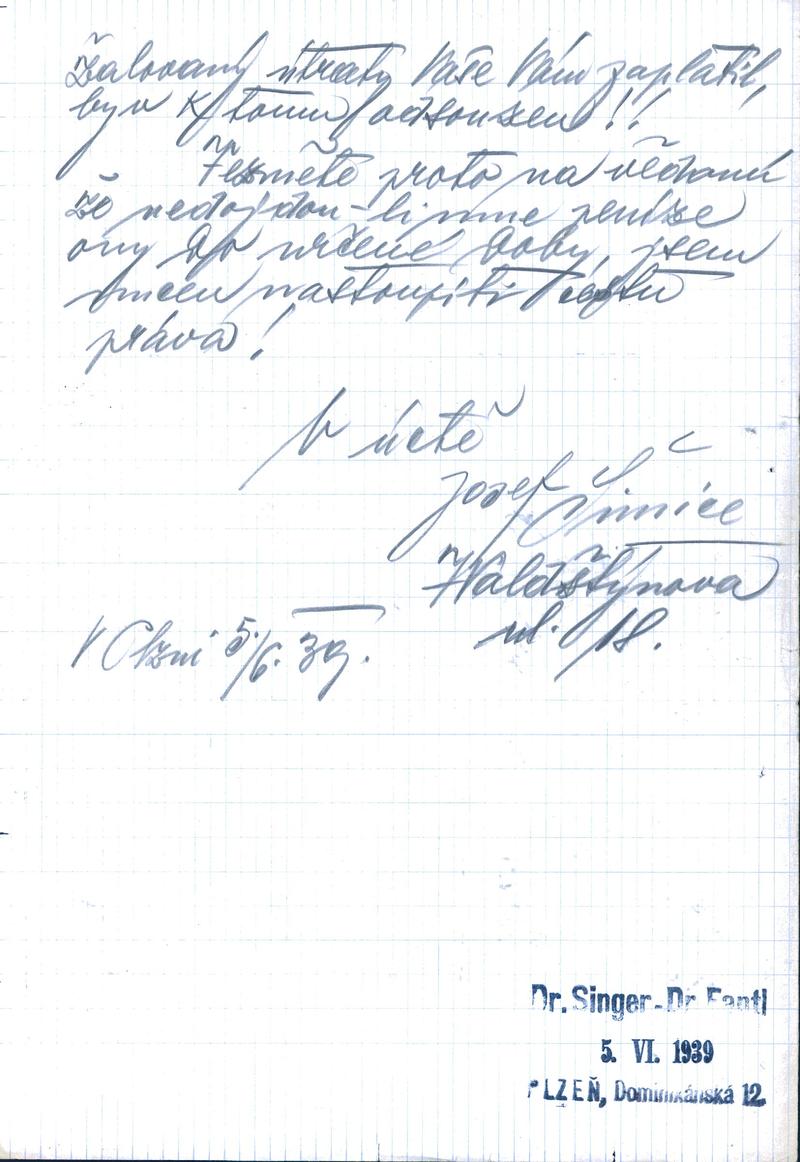 Žalovaný útraty Vaše Vám zaplatil,
byv k tomu odsouzen!!
Vezměte proto na vědomí
že nedojdou-li mne peníze
ony do určené doby, jsem
nucen nastoupiti cestu
práva!
V úctě
Josef
Valdštýnova
ul. 18.
V Plzni 5./6. 39.
Dr. Singer-Dr. Fantl
5. VI. 1939
PLZEŇ, Dominikánská 12